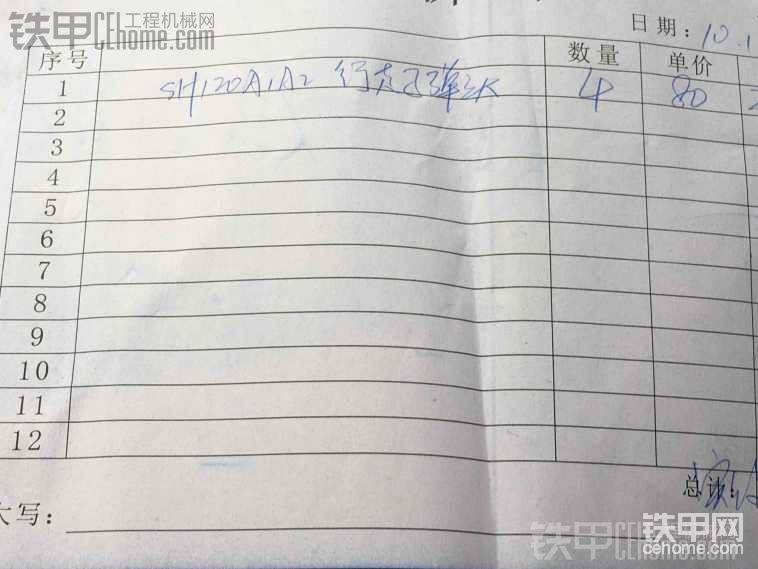 铁甲 工程机械网
CEhome.com
日期：10.1
序号 数量 单价
1 SH120A1A2 行走 弹 4 80
2
3
4
5
6
7
8
9
10
11
12
总计：
大写：
铁甲网
cehome.com